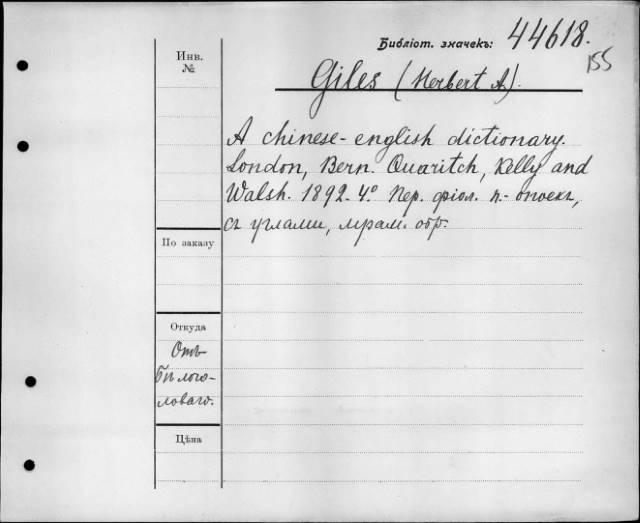 Библіот. значекъ: 44618.
155
Инв.
№
Giles (Herbert A.).
A chinese-english dictionary.
London, Bern. Quaritch, Kelly and
Walsh. 1892. 4º Пер. фіол. п.-
съ углами, мрам. обр.
По заказу
Откуда
Отъ
Бѣлого-
ловаго.
Цѣна